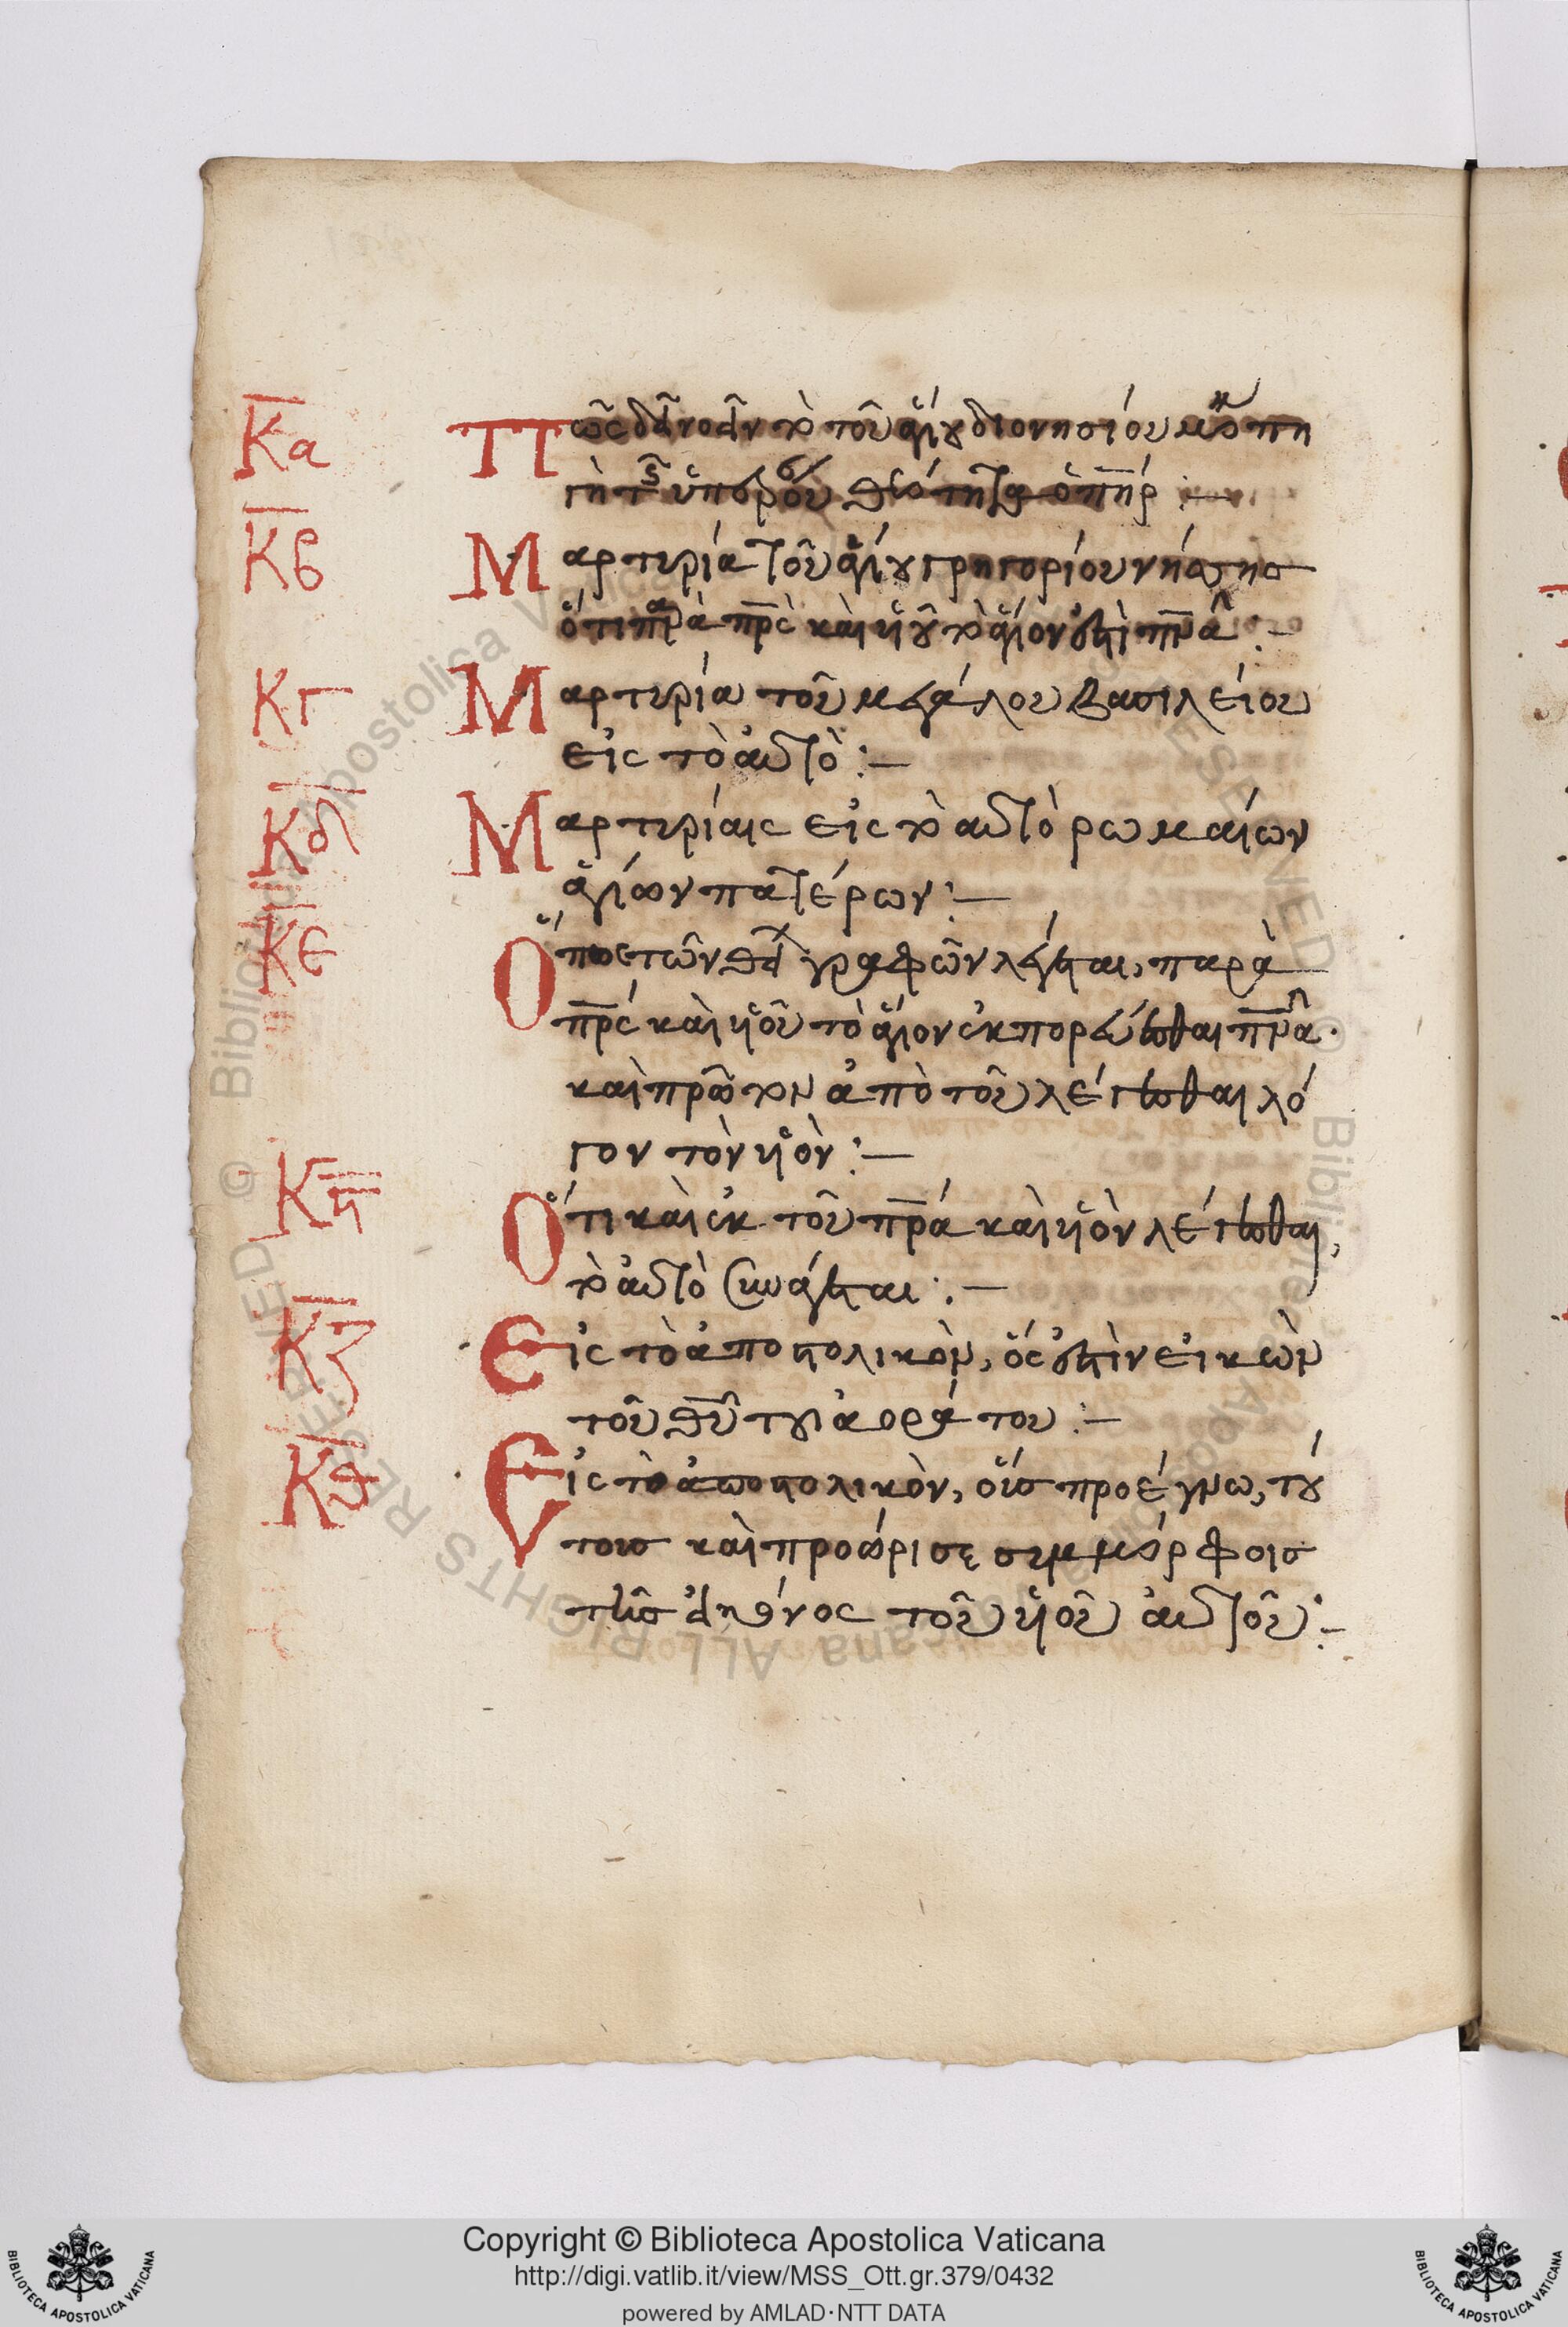 Κα Πῶς δεῖ νοεῖν τὸ τοῦ ἁγίου διονησίου μόνη πη
γὴ τῆς ὑπερουσίου θεότητος ὁ πηρ :—
Κβ Μαρτυρία τοῦ ἁγίου γρηγορίου νήσης
ὅτι παρὰ πρς καὶ ὑοῦ τὸ ἅγιον ἐστὶ πνα :—
Κγ Μαρτυρία τοῦ μεγάλου βασιλείου
εἰς τὸ αὐτὸ :—
Κδ Μαρτυρίαις εἰς τὸ αὐτὸ ρωμαίων
ἁγίων πατέρων :—
Κε Ὅπως τῶν θείων γραφῶν λέγεται, παρὰ
πρς καὶ ὑοῦ τὸ ἅγιον ἐκπορεύεσθαι πνα.
καὶ πρῶτον ἀπὸ τοῦ λέγεσθαι λό
γον τὸν ὑὸν :—
Κη Ὅτι καὶ ἐκ τοῦ πρα καὶ ὑὸν λέγεσθαι,
τὸ αὐτὸ συνάγεται :—
Κζ Εἰς τὸ ἀποστολικὸν, ὅς ἐστὶν εἰκὼν
τοῦ θυ τοῦ ἀοράτου :—
Κθ Εἰς τὸ ἀποστολικὸν, οἵσ προέγνω, τού
τοισ καὶ προώρισε συμμόρφοισ
τῆσ εἰκόνος τοῦ ὑοῦ αὐτοῦ :—
Copyright © Biblioteca Apostolica Vaticana
http://digi.vatlib.it/view/MSS_Ott.gr.379/0432
powered by AMLAD·NTT DATA
BIBLIOTECA APOSTOLICA VATICANA
BIBLIOTECA APOSTOLICA VATICANA